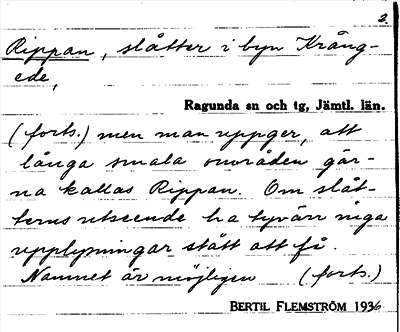 2.
Rippan, slåtter i byn Krång-
ede,
Ragunda sn och tg, Jämtl. län.
(forts.) men man uppger, att
långa smala områden gär-
na kallas Rippan. Om slåt-
terns utseende ha tyvärr inga
upplysningar stått att få.
Namnet är möjligen (forts.)
BERTIL FLEMSTRÖM 1936